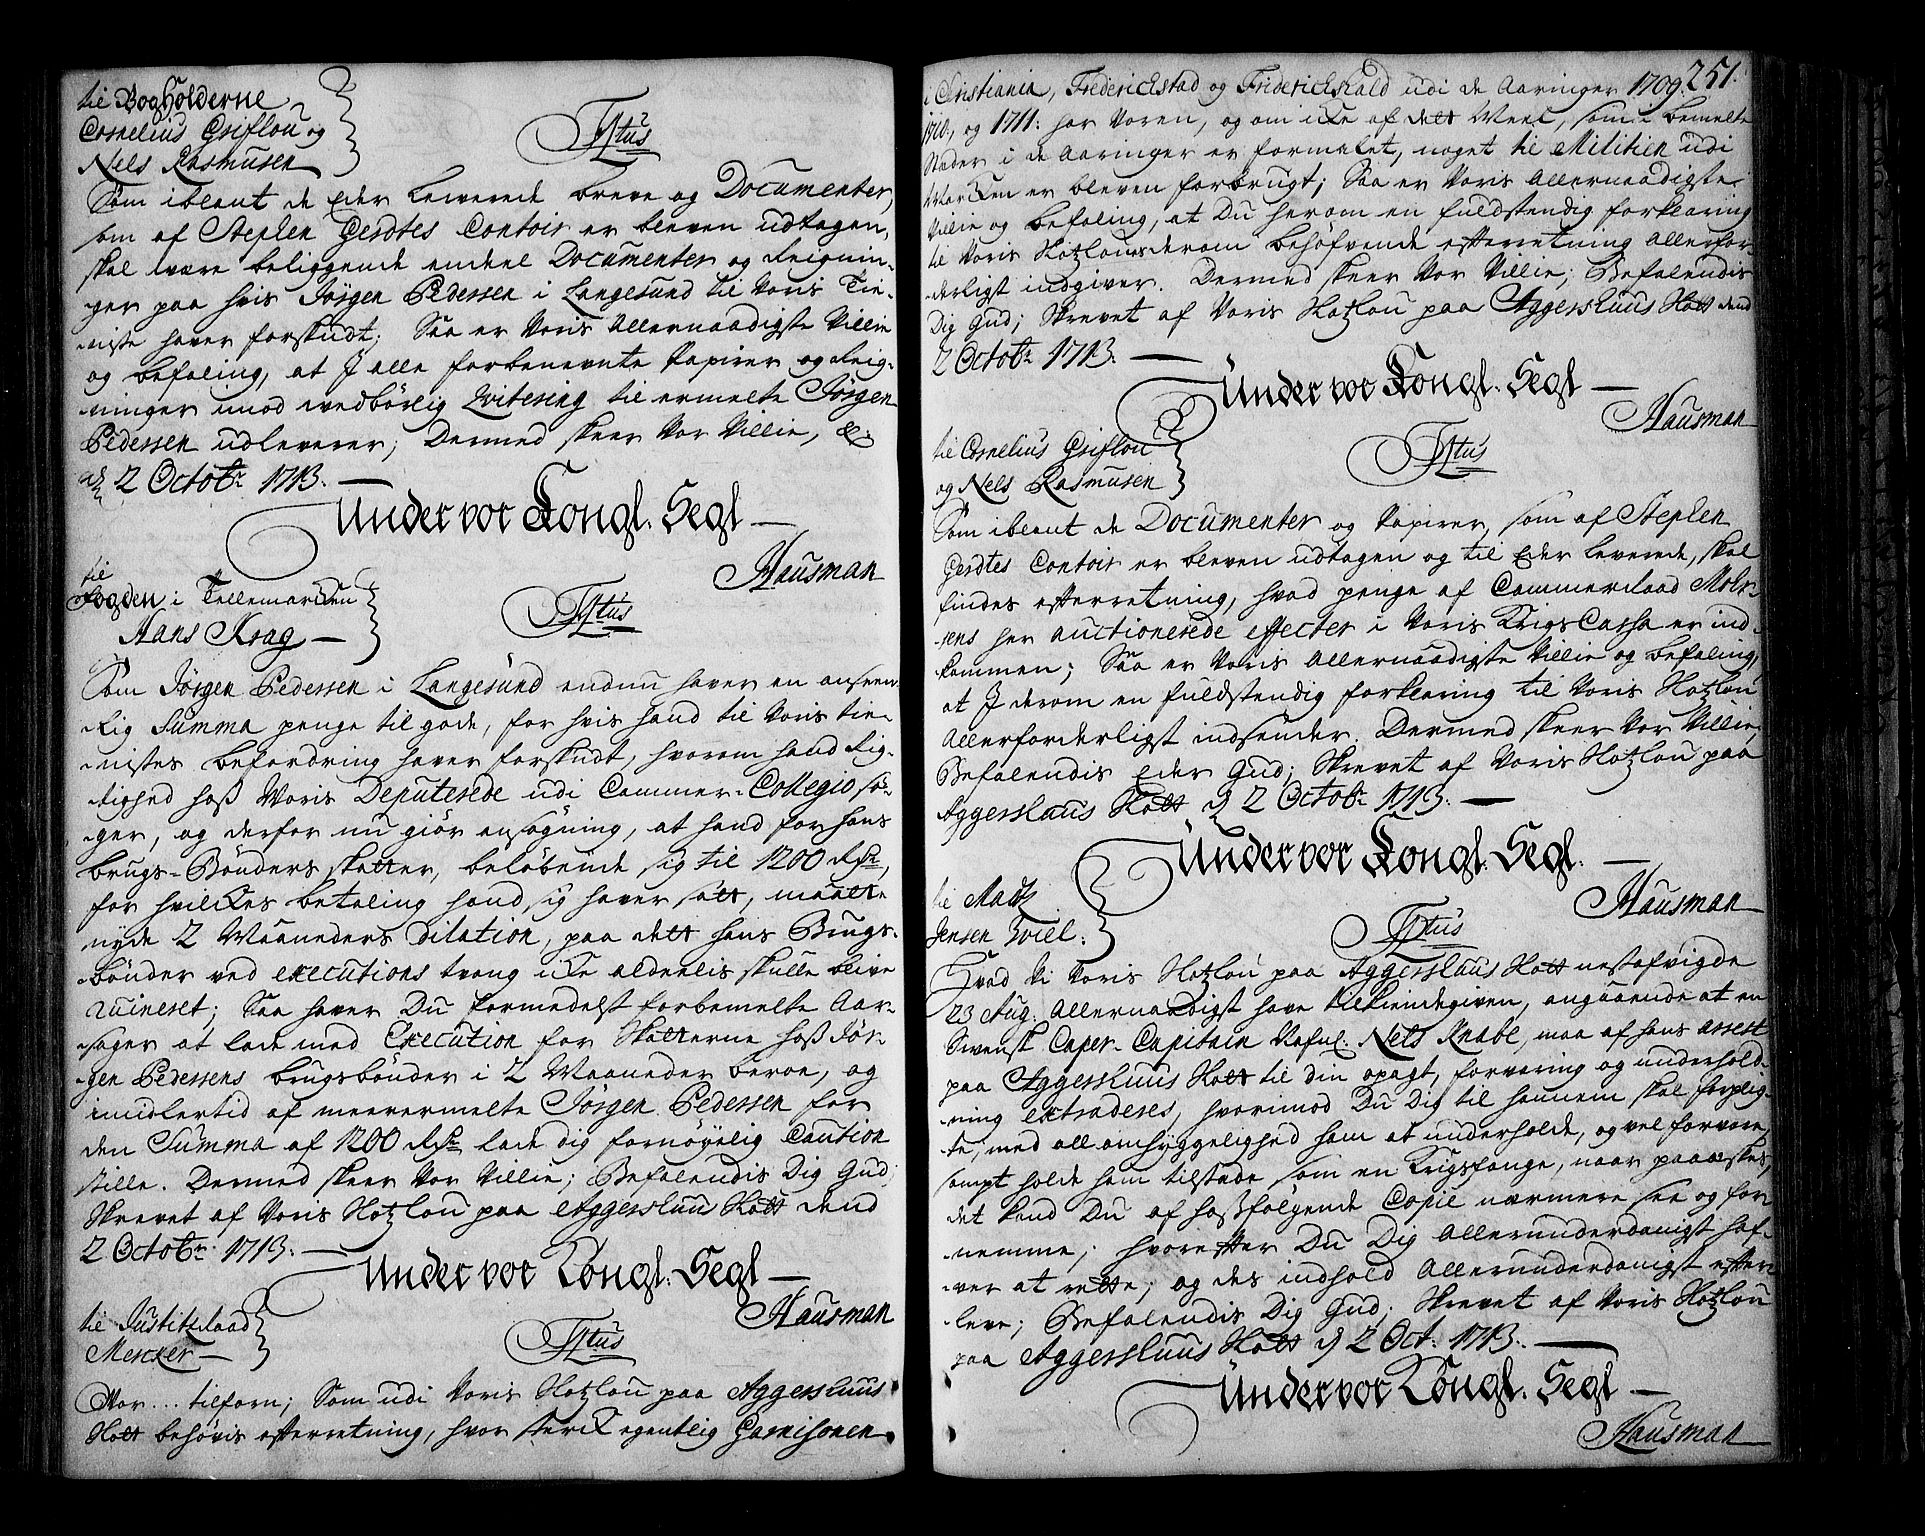 til Bogholderne
Cornelius Griflou og
Nels Rasmusen
Titus
Som iblant de Eder leverede breve og Documenter,
som af Stephen Gerdtes Contoir er bleven udtagen,
skal være beliggende endeel Documenter og Reignin-
ger paa hvis Jörgen Pedersen i Langesund til Voris Tie-
niste haver forskudt; Saa er Voris Allernaadigste Villie
og befaling, at I alle forbenevnte Papirer og Reig-
ninger imod vedbörlig Qvitering til ermelte Jörgen
Pedersen udleverer; Dermed skeer Vor Villie, &c
2 Octobr 1713.
Under vor Kongl. Segl
Hausman
til
Fogden i Tellemarcken
Hans Krag
Titus
Som Jörgen Pedersen i Langesund endnu haver en anseen-
lig Summa penge til gode, for hvis hand til Voris tie-
nistes befordring haver forskudt, hvorom hand Rig-
tighed hoß Voris Deputerede udi Cammer-Collegio sö-
ger, og derfor nu giör ansögning, at hand for hans
brugs-Bönders skatter, belöbende sig til 1200 Rdr,
for hvilckes betaling hand sig haver satt, maatte
nyde 2 Maaneders Dilation, paa dett hans Brugs-
bönder ved executions tvang icke aldeelis skulle blive
ruineret; Saa haver Du formedelst forbemelte Aar-
sager at lade med Execution for Skatterne hoß Jör-
gen Pedersens brugsbönder i 2 Maaneder beroe, og
imidlertid af meerermelte Jörgen Pedersen for
den Summa af 1200 Rdr lade dig fornöyelig Caution
stille. Dermed skeer Vor Villie; Befalendis Dig Gud;
Skrevet af Voris Slotzlou paa Aggershuus Slott dend
2 Octobr 1713.
Under vor Kongl. Segl
Hausman
til Justitzraad
Mercker
Titus
Vor... tilforn; Som udi Voris Slotzlou paa Aggershuus
Slott behövis efterretning, hvor sterck egentlig Garnisonen
251.
i Christiania, Frederichstad og Friderichshald udi de Aaringer 1709.
1710, og 1711: har Voren, og om icke af dett Meel, som i bemelte
Stæder i de Aaringer er formalet, noget til Militien udi
Marcken er bleven forbrugt; Saa er Voris Allernaadigste
Villie og befaling, at Du herom en fuldstendig forklaring
til Voris Slotzlous derom behöfvende efterretning Allerfor-
derligt indgiver. Dermed skeer Vor Villie; Befalendis
Dig Gud; Skrevet af Voris Slotzlou paa Aggershuus Slott dend
2 Octobr 1713.
Under vor Kongl. Segl
Hausman
til Cornelius Griflou
og Nels Rasmusen
Titus
Som iblant de Documenter og Papirer, som af Stephen
Gerdtes Contoir er bleven udtagen og til Eder leverede, skal
findes efterretning, hvad penge af Cammerraad Mohr-
sens her auctionerede effecter i Voris Krigs Cassa er ind-
kommen; Saa er Voris Allernaadigste Villie og befaling,
at I derom en fuldstendig forklaring til Voris Slotzlou
Allerforderligst indsender. Dermed skeer Vor Villie,
Befalendis Eder Gud; Skrevet af Voris Slotzlou paa
Aggershuus Slott d 2 Octobr 1713.
Under vor Kongl. Segl.
Hausman
til Madtz
Jensen Zviel:
Titus
Hvad Vi Voris Slotzlou paa Aggershuus Slott nestafvigde
23 Aug: Allernaadigst have tilkiendegiven, angaaende at en
Swensk Caper-Capitain Nafnl. Nels Knabe, maa af hans arrest
paa Aggershuus Slott til din opagt, forvaring og underhold-
ning extraderes, hvorimod Du Dig til hannem skal forplig-
te, med all omhyggelighed ham at underholde, og vel forvare,
sampt holde ham tilstæde som en Krigsfange, naar paaeskes,
det kand Du af hoßfölgende Copie nærmere see og for-
nemme, hvorefter Du Dig Allerunderdanigst haf-
ver at rette; og des indhold Allerunderdanigst efter-
leve; Befalendis Dig Gud; Skrevet af Voris Slotzlou
paa Aggershuus Slott d 2 Oct: 1713.
Under vor Kongl. Segl
Hausman